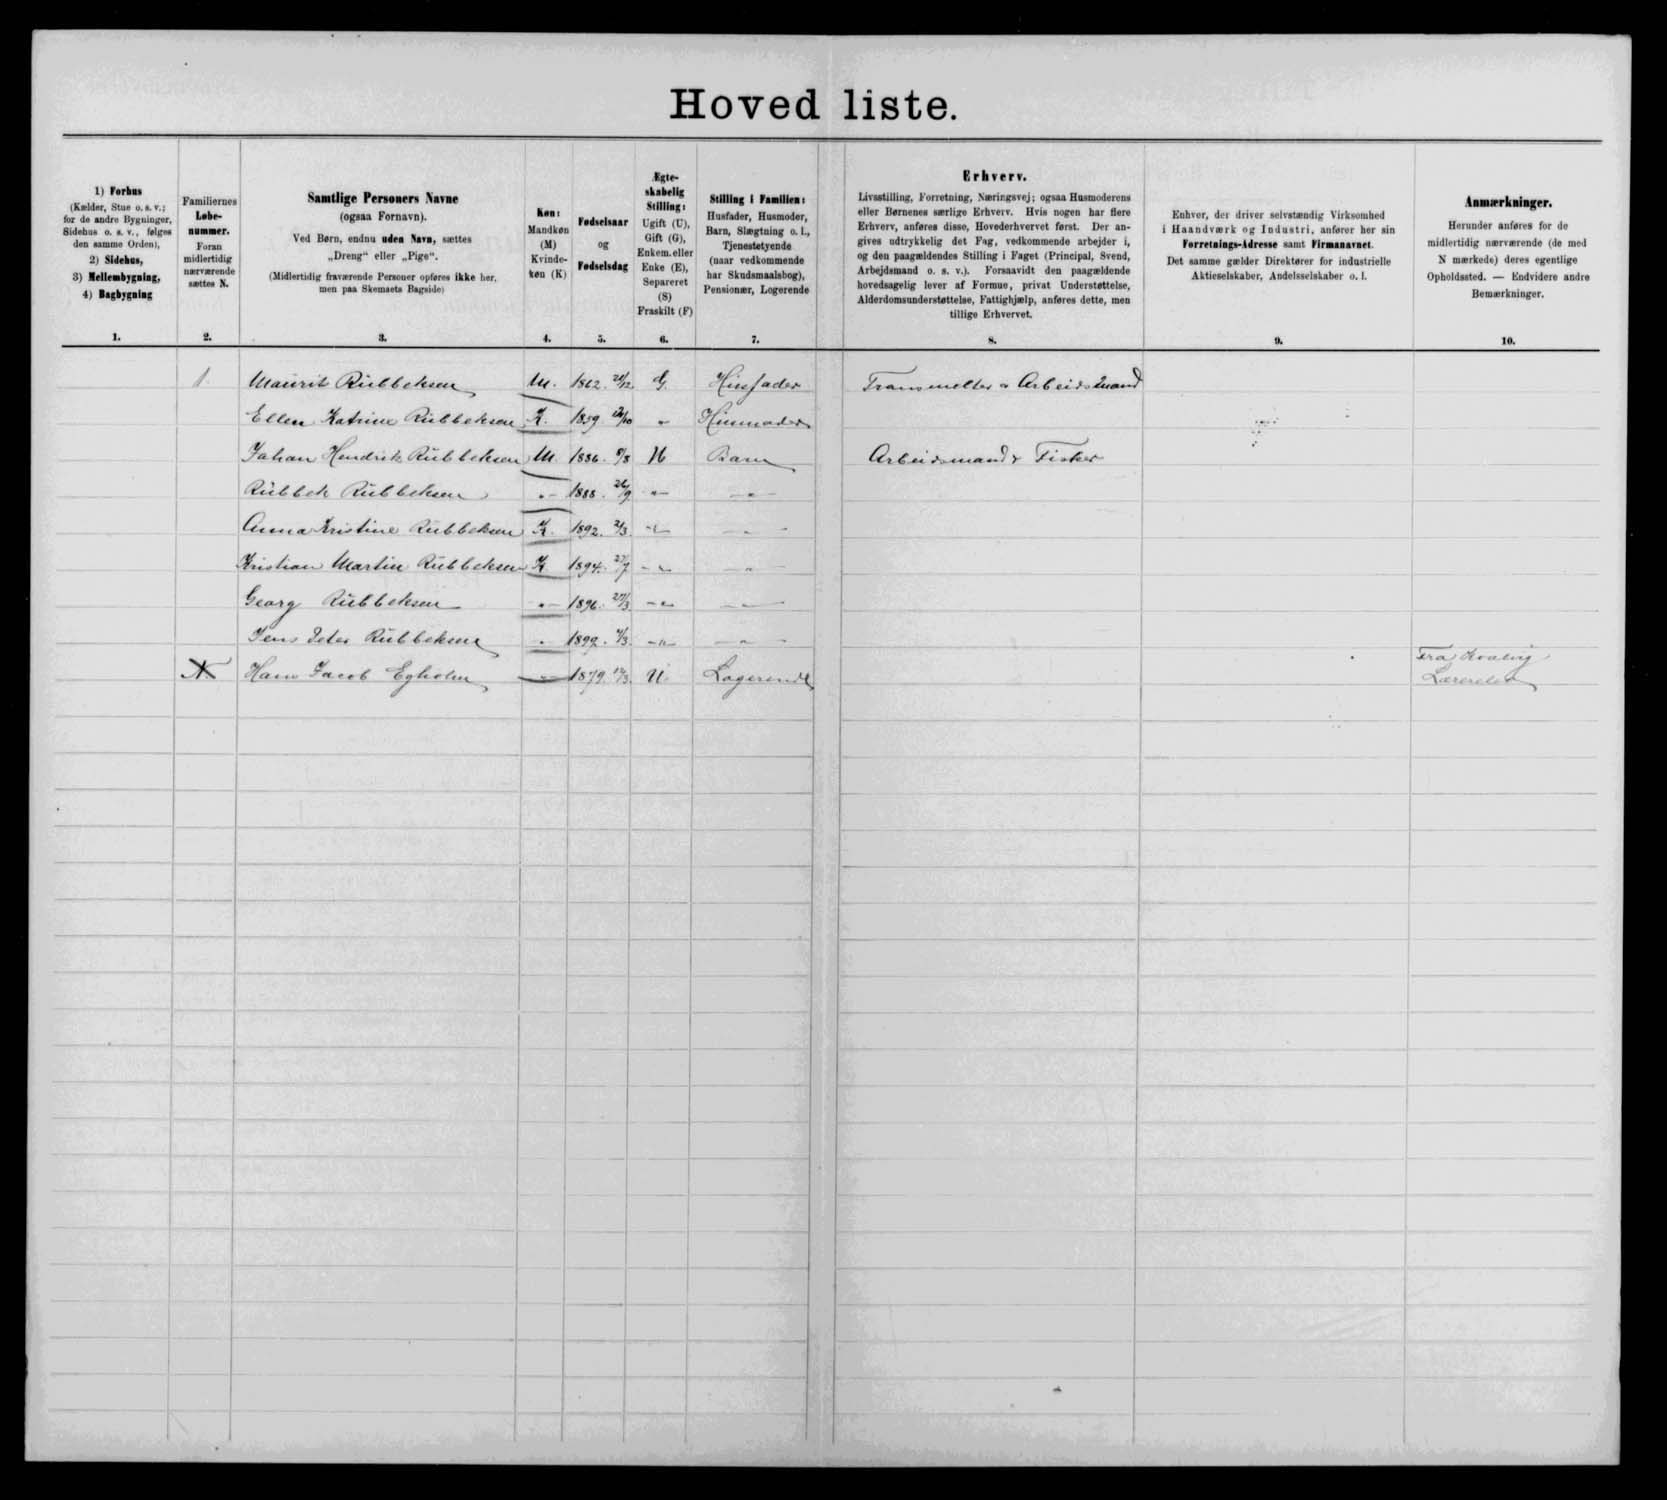 Hoved liste.
1) Forhus
(Kælder, Stue o. s. v.;
for de andre Bygninger,
Sidehus o. s. v., følges
den samme Orden),
2) Sidehus,
3) Mellembygning,
4) Bagbygning
1.
Familiernes
Løbe-
nummer.
Foran
midlertidig
nærværende
sættes N.
2.
Samtlige Personers Navne
(ogsaa Fornavn).
Ved Børn, endnu uden Navn, sættes
„Dreng“ eller „Pige“.
(Midlertidig fraværende Personer opføres ikke her,
men paa Skemaets Bagside)
3.
Køn:
Mandkøn
(M)
Kvinde-
køn (K)
4.
Fødselsaar
og
Fødselsdag
5.
Ægte-
skabelig
Stilling:
Ugift (U),
Gift (G),
Enkem. eller
Enke (E),
Separeret
(S)
Fraskilt (F)
6.
Stilling i Familien:
Husfader, Husmoder,
Barn, Slægtning o. l.,
Tjenestetyende
(naar vedkommende
har Skudsmaalsbog),
Pensionær, Logerende
7.
Erhverv.
Livsstilling, Forretning, Næringsvej; ogsaa Husmoderens
eller Børnenes særlige Erhverv. Hvis nogen har flere
Erhverv, anføres disse, Hovederhvervet først. Der an-
gives udtrykkelig det Fag, vedkommende arbejder i,
og den paagældendes Stilling i Faget (Principal, Svend,
Arbejdsmand o. s. v.). Forsaavidt den paagældende
hovedsagelig lever af Formue, privat Understøttelse,
Alderdomsunderstøttelse, Fattighjælp, anføres dette, men
tillige Erhvervet.
8.
Enhver, der driver selvstændig Virksomhed
i Haandværk og Industri, anfører her sin
Forretnings-Adresse samt Firmanavnet.
Det samme gælder Direktører for industrielle
Aktieselskaber, Andelsselskaber o. l.
9.
Anmærkninger.
Herunder anføres for de
midlertidig nærværende (de med
N mærkede) deres egentlige
Opholdssted. — Endvidere andre
Bemærkninger.
10.
1. Maurit Rübbeksen M. 1862. 20/12 G. Husfader Transmelter & Arbeidsmand
Ellen Katrine Rübbeksen K. 1859 /10 " Husmoder
Johan Hendrik Rübbeksen M. 1886. /8 U Barn Arbeidsmand & Fisker
Rübbek Rübbeksen " 1888. 26/9 " "
Anna Kristine Rübbeksen K. 1892. 2/3. " "
Kristian Martin Rübbeksen K 1894. 27/7 " "
Georg Rübbeksen " 1896. 27/3. " "
Jens Peter Rübbeksen " 1899. /3. " "
N Hans Jacob Egholm " 1879. /3. U. Logerende Fra Kvalvig
Lærerelev